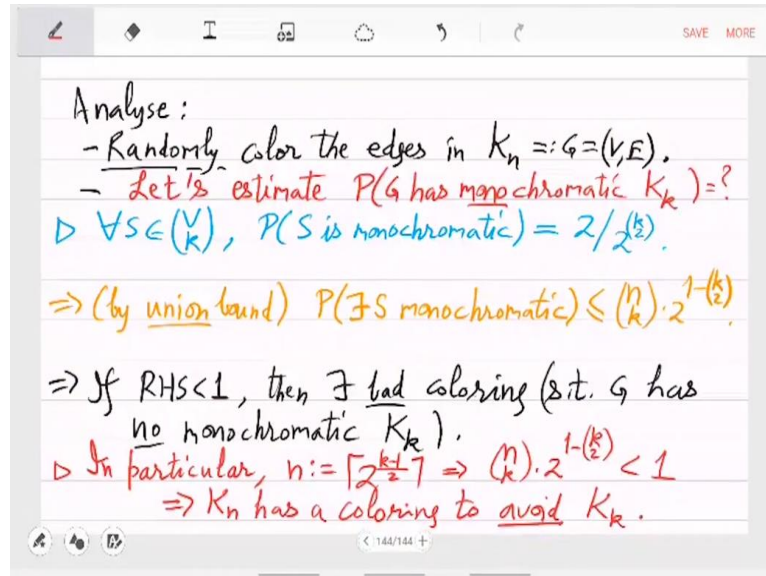 T
SAVE MORE
Analyse :
- Randomly color the edges in Kₙ =: G=(V,E).
- Let's estimate P(G has monochromatic Kₖ)=?
▷ ∀S∈(V choose k), P(S is monochromatic) = 2/2^(k choose 2).
=> (by union bound) P(∃S monochromatic) ≤ (n choose k)·2^{1-(k choose 2)}.
=> If RHS<1, then ∃ bad coloring (s.t. G has
no monochromatic Kₖ).
▷ In particular, n:= ⌈2^{(k-1)/2}⌉ => (n choose k)·2^{1-(k choose 2)} < 1
=> Kₙ has a coloring to avoid Kₖ.
< 144/144 +